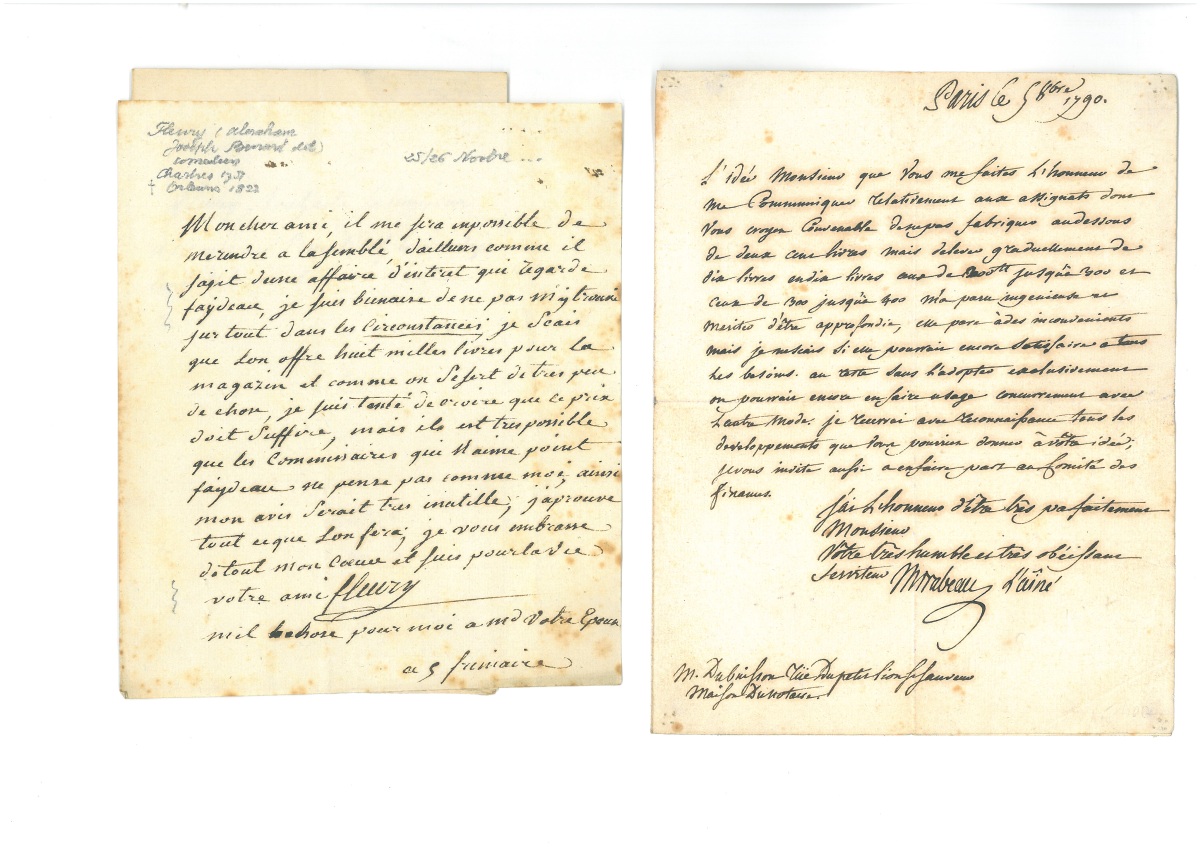 Fleury (Abraham
Joseph Bénard dit)
comédien
Chartres 1751
† Orléans 1822
25/26 Novbre ...
Mon cher ami, il me sera imposible de
merendre a lasemblé, dailleurs comme il
sagit dune affaire d'interet qui regarde
faydeau, je suis bienaise de ne pas m'y trouvé
surtout dans les Circonstances, je Scais
que Lon offre huit milles livres pour la
magazin et comme on Sesert de tres peu
de chose, je suis tenté de croire que ce prix
doit Suffire, mais ils est tres possible
que les Commissaires qui N'aime point
faydeau ne pense pas comme moi, ainsi
mon avis Serait tres inutille, j'aprouve
tout ce que Lon fera, je vous embrasse
de tout mon Coeur et suis pour la vie
votre ami fleury
mil chose pour moi a md Votre Epouse
ce 5 frimaire
Paris le 5 8bre 1790.
L'idée Monsieur que Vous me faites L'honneur de
me Communiquer relativement aux assignats dont
Vous croyez Convenable denepas fabriquer audessous
de deux cent livres mais delever graduellement de
dix livres endix livres ceux de jusqu'à 300 et
ceux de 300 jusqu'à 400 m'a paru ingenieuse et
merite d'être approfondie, elle pare àdes inconvenients
mais je nesais si elle pourrait encore Satisfaire a tous
Les besoins. au reste sans l'adopter exclusivement
on pourrait encore en faire usage concurremment avec
L'autre Mode. je recevrai avec reconnaissance tous les
developpements que Vous pourriez donner a vôtre idée;
je vous invite aussi a enfaire part au Comité des
finances.
J'ai L'honneur d'être très parfaitement
Monsieur
Vôtre très humble et très obéissant
Serviteur Mirabeau L'aîné
M. Dubuisson Rüe Du petit lion St sauveur
Maison Du Notaire.